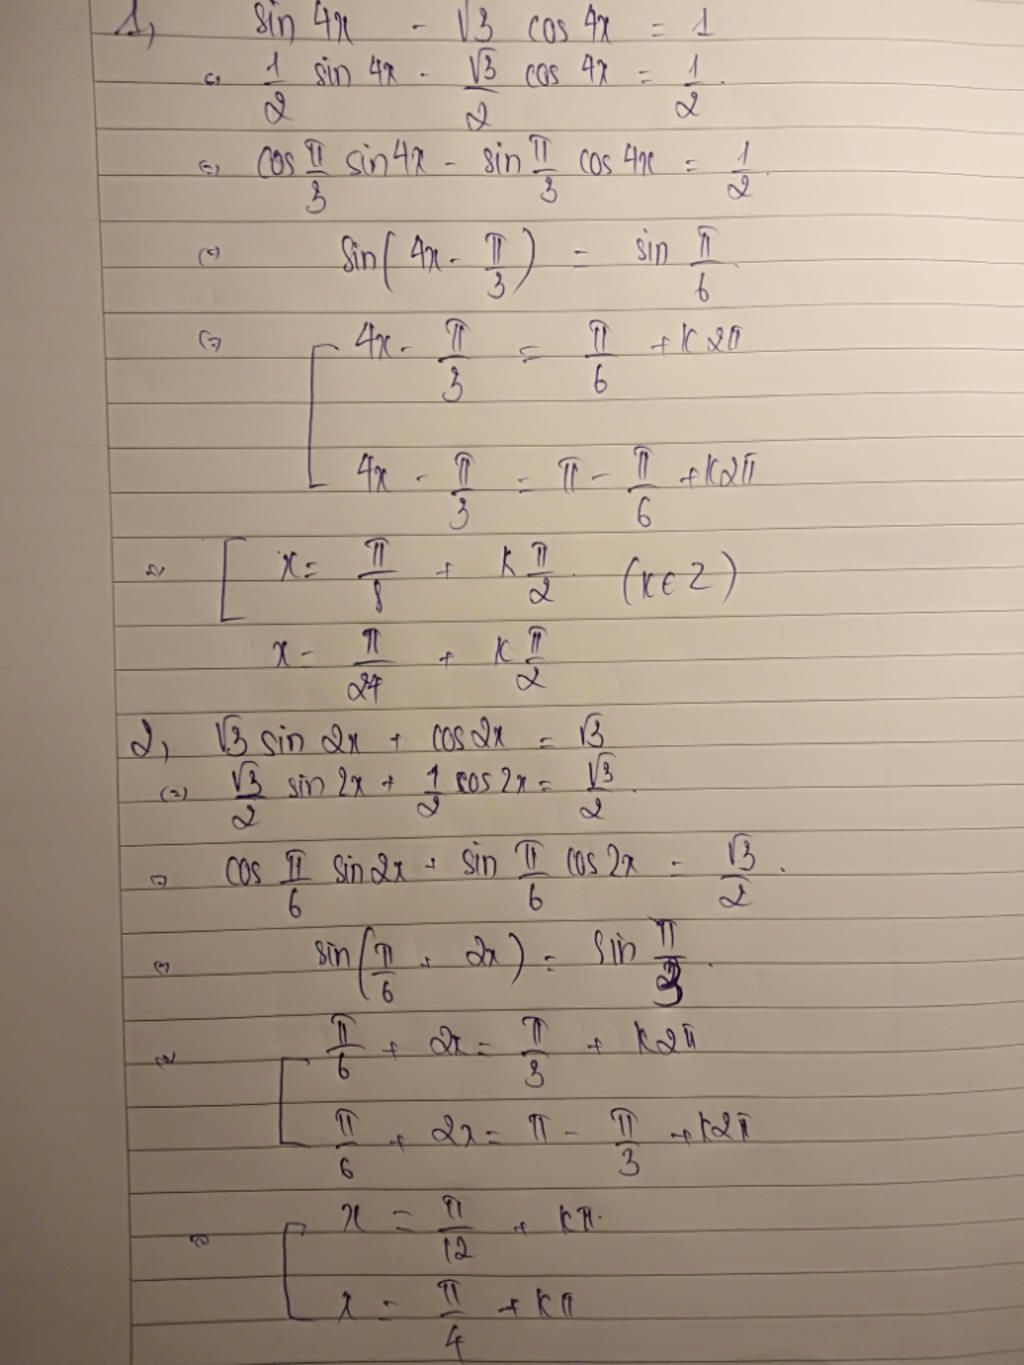 1, sin 4x - √3 cos 4x = 1
⇔ 1/2 sin 4x - √3/2 cos 4x = 1/2.
⇔ cos π/3 sin 4x - sin π/3 cos 4x = 1/2.
⇔ sin(4x - π/3) = sin π/6.
⇔ [ 4x - π/3 = π/6 + k2π
4x - π/3 = π - π/6 + k2π
⇔ [ x = π/8 + k π/2. (k∈Z)
x = π/24 + k π/2
2, √3 sin 2x + cos 2x = √3
⇔ √3/2 sin 2x + 1/2 cos 2x = √3/2.
⇔ cos π/6 sin 2x + sin π/6 cos 2x = √3/2.
⇔ sin(π/6 + 2x) = sin π/3.
⇔ [ π/6 + 2x = π/3 + k2π
π/6 + 2x = π - π/3 + k2π
⇔ [ x = π/12 + kπ.
x = π/4 + kπ